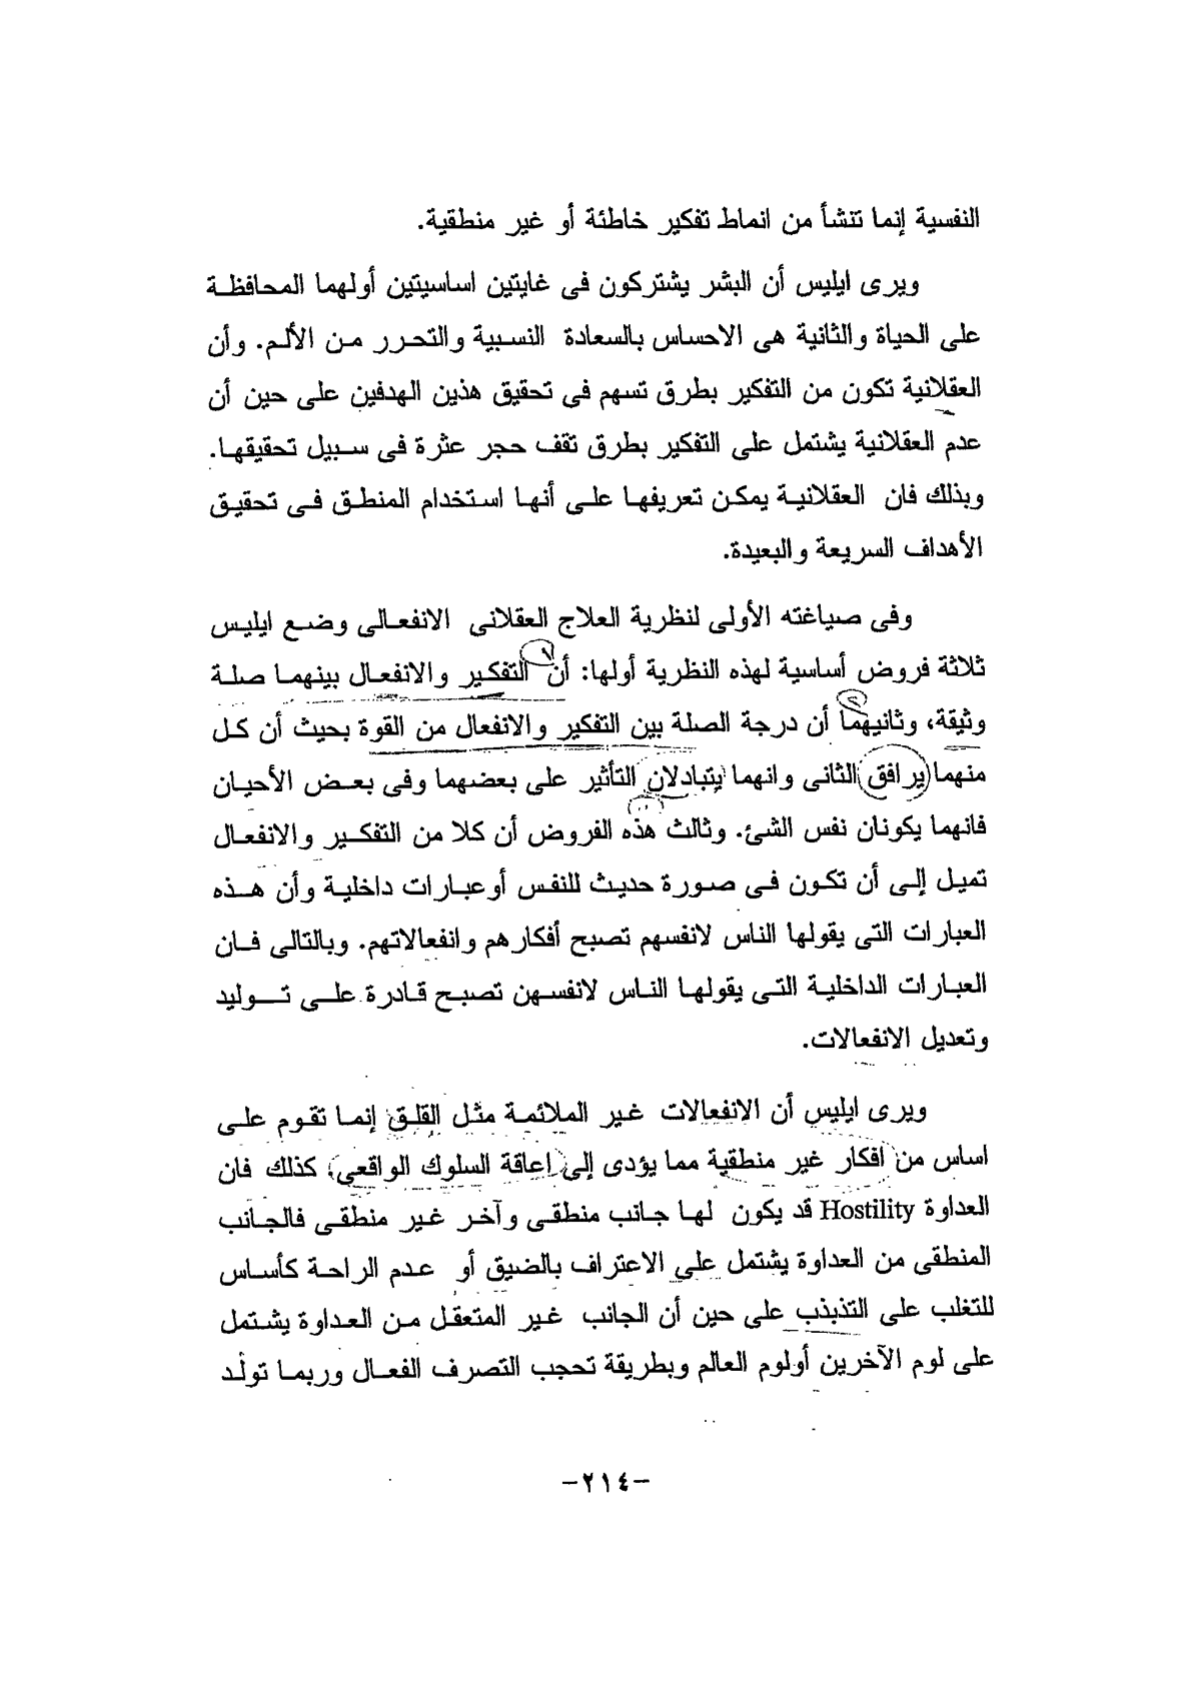 النفسية إنما تنشأ من انماط تفكير خاطئة أو غير منطقية.
ويرى ايليس أن البشر يشتركون فى غايتين اساسيتين أولهما المحافظة
على الحياة والثانية هى الاحساس بالسعادة النسبية والتحرر من الألم. وأن
العقلانية تكون من التفكير بطرق تسهم فى تحقيق هذين الهدفين على حين أن
عدم العقلانية يشتمل على التفكير بطرق تقف حجر عثرة فى سبيل تحقيقها.
وبذلك فان العقلانية يمكن تعريفها على أنها استخدام المنطق فى تحقيق
الأهداف السريعة والبعيدة.
وفى صياغته الأولى لنظرية العلاج العقلانى الانفعالى وضع ايليس
ثلاثة فروض أساسية لهذه النظرية أولها: أن التفكير والانفعال بينهما صلة
وثيقة، وثانيهما أن درجة الصلة بين التفكير والانفعال من القوة بحيث أن كل
منهما يرافق الثانى وانهما يتبادلان التأثير على بعضهما وفى بعض الأحيان
فانهما يكونان نفس الشئ. وثالث هذه الفروض أن كلا من التفكير والانفعال
تميل إلى أن تكون فى صورة حديث للنفس أوعبارات داخلية وأن هذه
العبارات التى يقولها الناس لانفسهم تصبح أفكارهم وانفعالاتهم. وبالتالى فان
العبارات الداخلية التى يقولها الناس لانفسهن تصبح قادرة على توليد
وتعديل الانفعالات.
ويرى ايليس أن الانفعالات غير الملائمة مثل القلق إنما تقوم على
اساس من افكار غير منطقية مما يؤدى إلى إعاقة السلوك الواقعى، كذلك فان
العداوة Hostility قد يكون لها جانب منطقى وآخر غير منطقى فالجانب
المنطقى من العداوة يشتمل على الاعتراف بالضيق أو عدم الراحة كأساس
للتغلب على التذبذب على حين أن الجانب غير المتعقل من العداوة يشتمل
على لوم الآخرين أولوم العالم وبطريقة تحجب التصرف الفعال وربما تولد
-٢١٤-